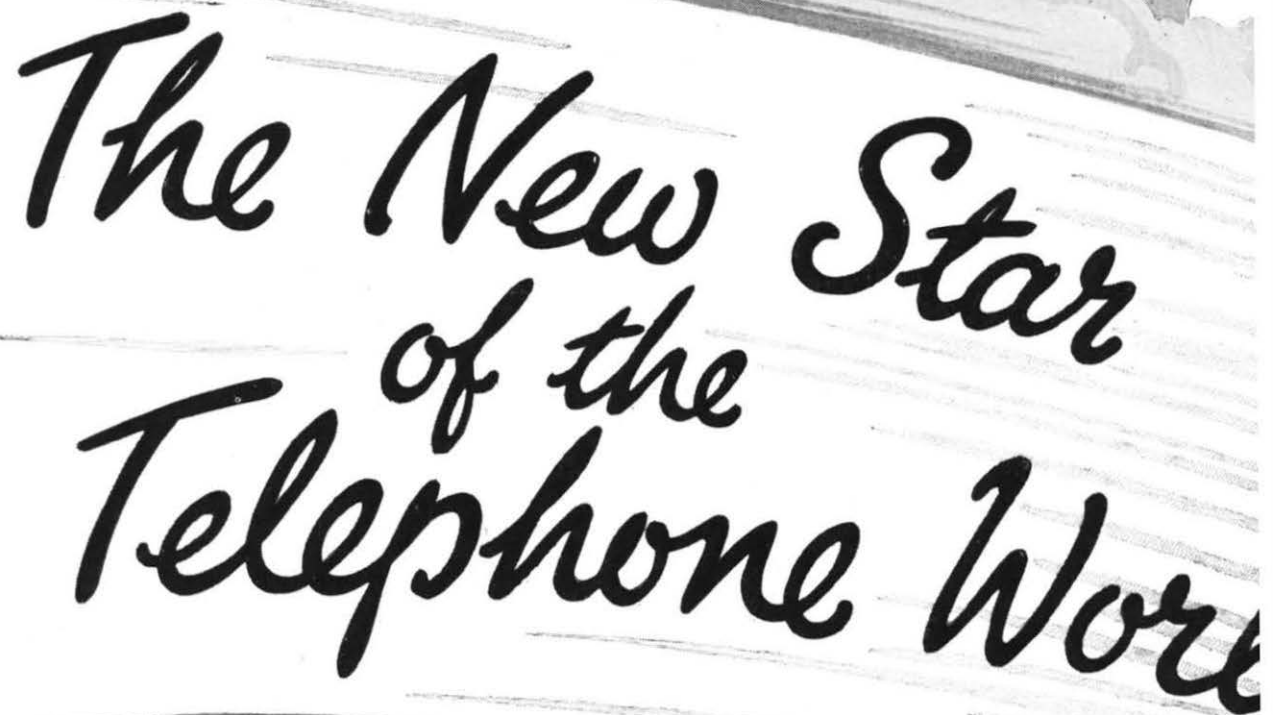 The New Star
of the
Telephone Worl